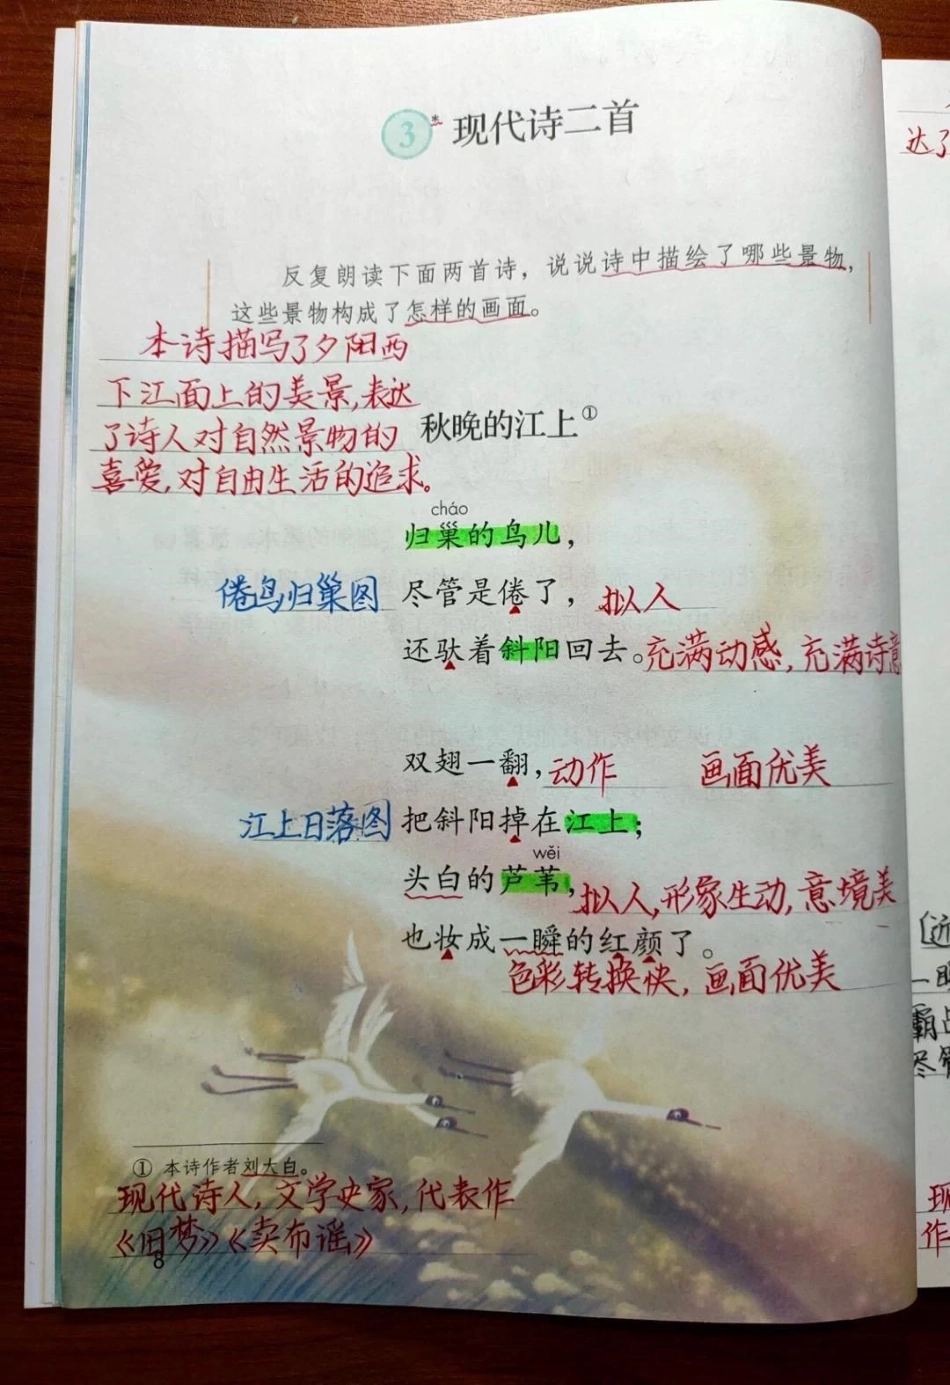 3 * 现代诗二首
反复朗读下面两首诗，说说诗中描绘了哪些景物，
这些景物构成了怎样的画面。
本诗描写了夕阳西
下江面上的美景，表达
了诗人对自然景物的
喜爱，对自由生活的追求。
秋晚的江上①
cháo
归巢的鸟儿，
倦鸟归巢图 尽管是倦了， 拟人
还驮着斜阳回去。充满动感，充满诗意
双翅一翻，动作 画面优美
江上日落图 把斜阳掉在江上；
wěi
头白的芦苇，拟人，形象生动，意境美
也妆成一瞬的红颜了。
色彩转换快，画面优美
① 本诗作者刘大白。
现代诗人，文学史家，代表作
《旧梦》《卖布谣》
8
达了
近
一瞬
霸占
尽管
现
作